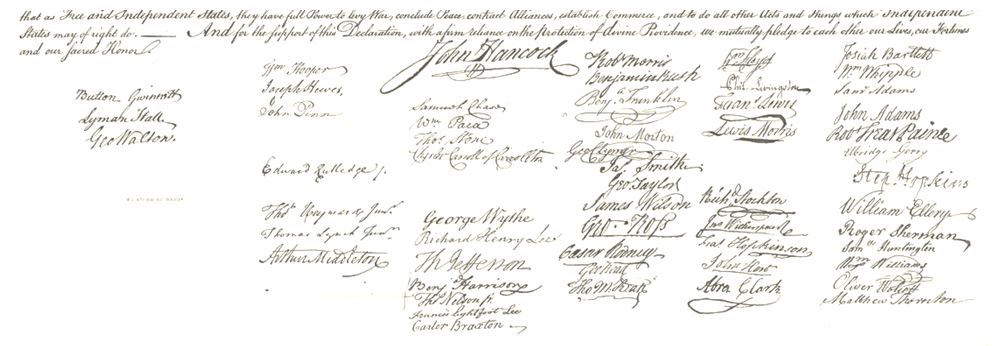 that as Free and Independent States, they have full Power to levy War, conclude Peace, contract Alliances, establish Commerce, and to do all other Acts and Things which Independent
States may of right do. — And for the support of this Declaration, with a firm reliance on the Protection of divine Providence, we mutually pledge to each other our Lives, our Fortunes
and our sacred Honor.
John Hancock
Button Gwinnett
Lyman Hall
Geo Walton.
Wm Hooper
Joseph Hewes,
John Penn
Edward Rutledge /.
Thos Heyward Junr.
Thomas Lynch Junr.
Arthur Middleton
Samuel Chase
Wm Paca
Thos Stone
Charles Carroll of Carrollton
George Wythe
Richard Henry Lee
Th Jefferson
Benja Harrison
Thos Nelson jr.
Francis Lightfoot Lee
Carter Braxton
Robt Morris
Benjamin Rush
Benja Franklin
John Morton
Geo Clymer
Jas Smith
Geo. Taylor
James Wilson
Geo. Ross
Caesar Rodney
Geo Read
Tho M:Kean
Wm Floyd
Phil. Livingston
Frans. Lewis
Lewis Morris
Richd Stockton
Jno Witherspoon
Fras Hopkinson
John Hart
Abra Clark
Josiah Bartlett
Wm Whipple
Saml Adams
John Adams
Robt Treat Paine
Elbridge Gerry
Step. Hopkins
William Ellery
Roger Sherman
Saml Huntington
Wm Williams
Oliver Wolcott
Matthew Thornton